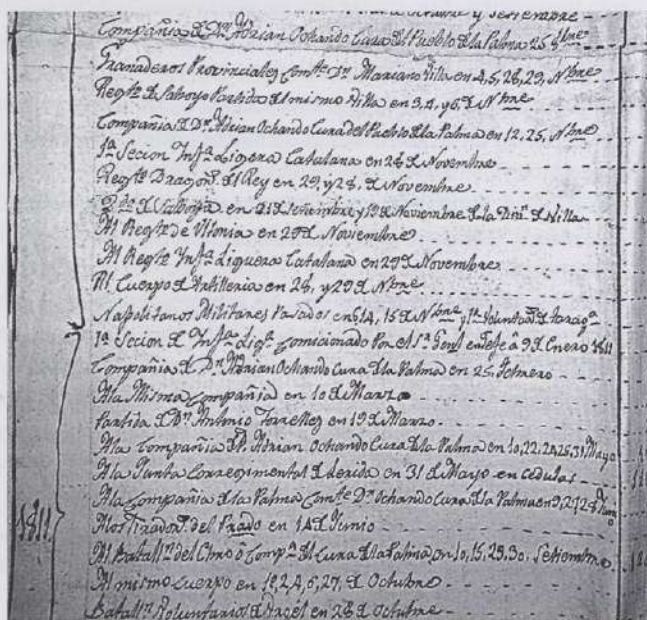 Octubre y Setiembre
Compañia d Dn. Adrian Ochando Cura del Pueblo d la Palma 25 8bre
Granaderos Provinciales Comte. Dn. Mariano Villa en 4, 5, 28, 29, Nbre
Regto. d Saboya Partida del mismo Villa en 3, 4, y 6, d Nbre
Compañia d Dn. Adrian Ochando Cura del Pueblo d la Palma en 12, 25, Nbre
1a Secion Infa. Ligera Catalana en 28 d Novembre
Regto. Dragons. del Rey en 29, y 28, d Novembre
2do. d Saboya en 21 d Setiembre y 19 d Noviembre d la Divn. d Villa
Al Regto de Ultonia en 29 d Noviembre
Al Regto Infa. Liguera Catalana en 29 d Novembre
Al Cuerpo d Artilleria en 28, y 29 d Nbre
Napolitanos Militares Pasados en 14, 15 d Nbre y 1a Voluntas. d Tarraga.
1a Secion d Infa. Liga. Comicionado Por el Sr. Genl en Gefe a 9 d Enero 1811
Compañia d Dn. Adrian Ochando Cura d la Palma en 25 Febrero
A la Misma Compañia en 10 d Marzo
Partida d Dn. Antonio en 19 d Marzo
A la Compañia d D. Adrian Ochando Cura d la Palma en 10, 22, 24, 25, 31 Mayo
A la Junta Corregimental d Lerida en 31 d Mayo en cedulas
A la Compañia d la Palma Comte Dn. Ochando Cura d la Palma en 9, 21, 28 Juno
1811 A los Tirados. del Prado en 14 d Junio
Al Batalln. del Cho o Compa. del Cura d la Palma en 10, 15, 29, 30, Setiembre
Al mismo Cuerpo en 1o, 2, 4, 6, 27, d Octubre
Batalln. Voluntarios d en 28 d Octubre